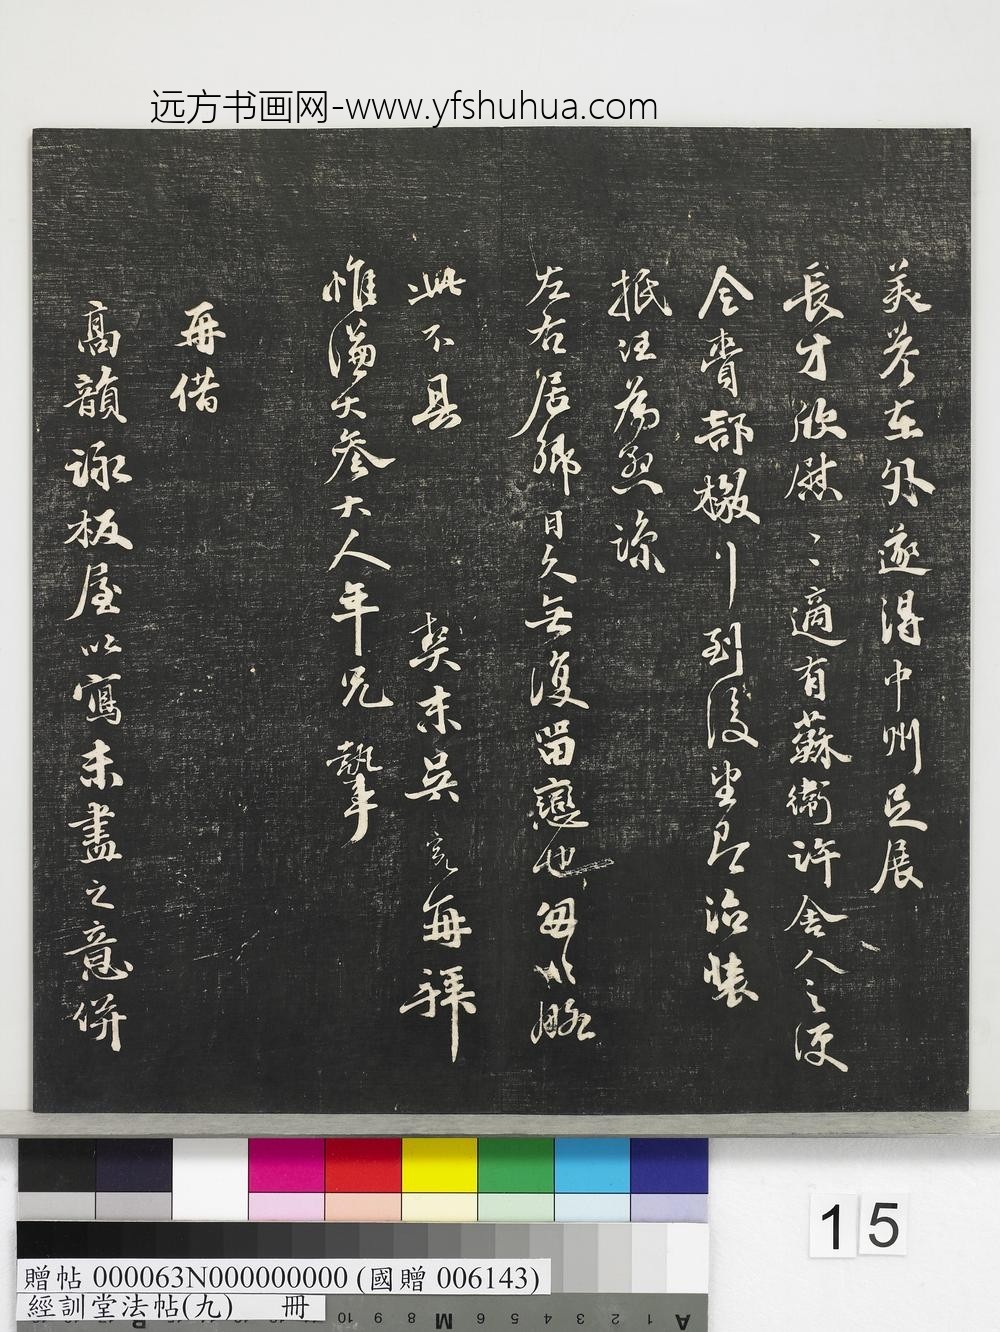 远方书画网-www.yfshuhua.com
美名在外遂得中州足展
長才欣慰〻適有蘇衛許舍人之便
令齎部檄到後望即治裝
抵汪為懇諒
左右居鄉日久無復留戀也毋以略
此不具 契末吳寬再拜
惟謙大參大人年兄執事
再借
高韻詠板屋以寫未盡之意併
15
贈帖 000063N000000000 (國贈 006143)
經訓堂法帖(九) 冊